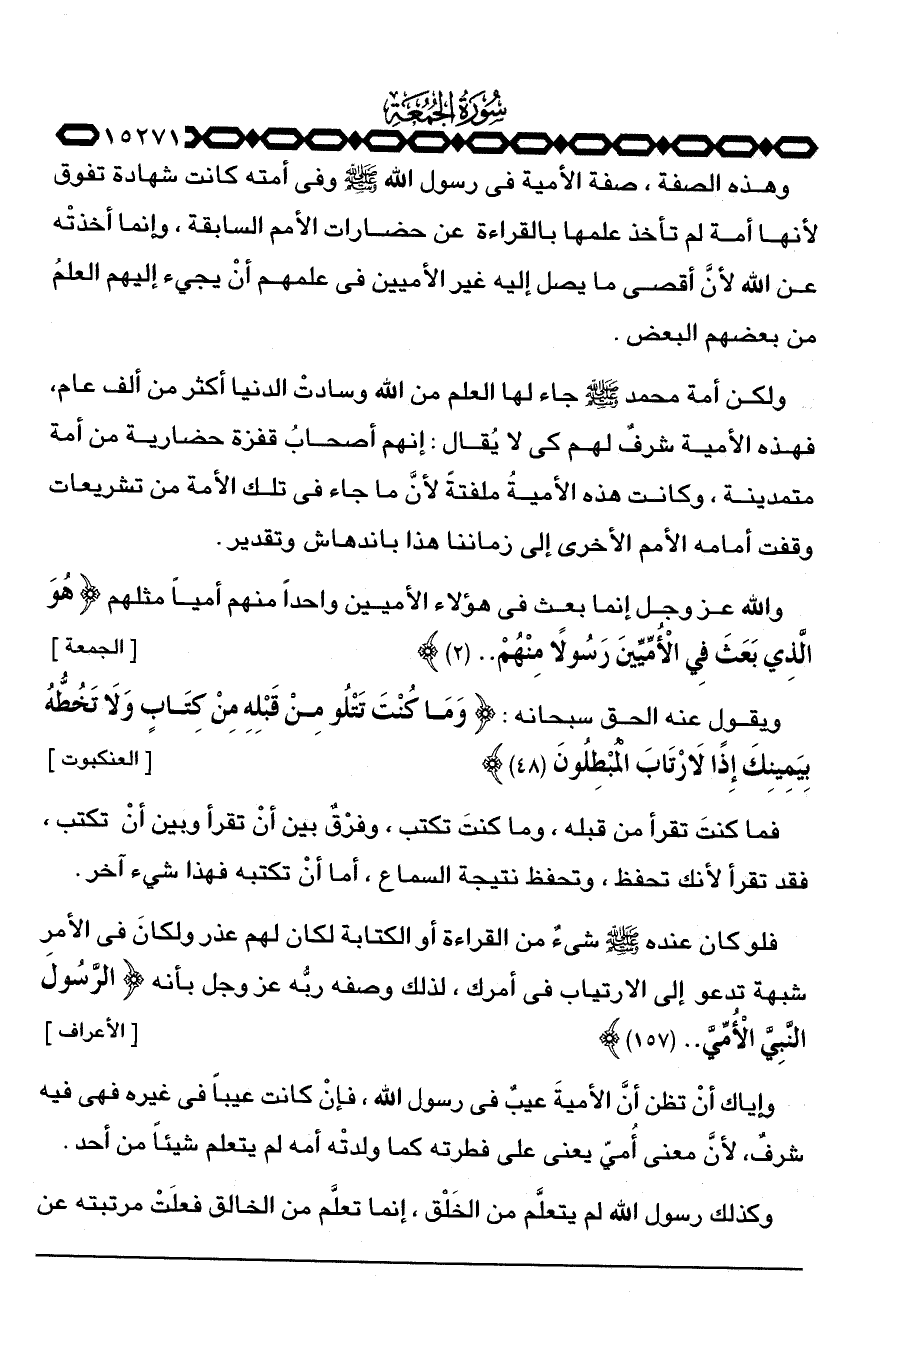 سُورَةُ الجُمُعَةِ
١٥٢٧١
وهـذه الصفة ، صفة الأمية فى رسول الله ﷺ وفى أمته كانت شهادة تفوق
لأنهـا أمـة لم تأخذ علمها بالقراءة عن حضارات الأمم السابقة ، وإنما أخذتْه
عـن الله لأنَّ أقصـى ما يصل إليه غير الأميين فى علمهـم أنْ يجيء إليهم العلمُ
من بعضهم البعض .
ولكـن أمة محمد ﷺ جاء لها العلم من الله وسادتْ الدنيا أكثر من ألف عام،
فهـذه الأميـة شرفٌ لهـم كى لا يُقـال : إنهم أصحابُ قفزة حضارية من أمة
متمدينـة ، وكانـت هذه الأميةُ ملفتةً لأنَّ ما جاء فى تلـك الأمة من تشريعات
وقفت أمامه الأمم الأخرى إلى زماننا هذا باندهاش وتقدير.
والله عـز وجـل إنما بعـث فى هؤلاء الأميـين واحداً منهم أميـاً مثلهم ﴿ هُوَ
الَّذِي بَعَثَ فِي الْأُمِّيِّينَ رَسُولًا مِنْهُمْ.. (٢) ﴾ [ الجمعة ]
ويقـول عنه الحـق سبحانه : ﴿ وَمَـا كُنْتَ تَتْلُو مِـنْ قَبْلِهِ مِنْ كِتَـابٍ وَلَا تَخُطُّهُ
بِيَمِينِكَ إِذًا لَارْتَابَ الْمُبْطِلُونَ (٤٨) ﴾ [ العنكبوت ]
فما كنتَ تقرأ من قبله ، وما كنتَ تكتب ، وفرْقٌ بين أنْ تقرأ وبين أنْ تكتب ،
فقد تقرأ لأنك تحفظ ، وتحفظ نتيجة السماع ، أما أنْ تكتبه فهذا شيء آخر .
فلو كان عنده ﷺ شىءٌ من القراءة أو الكتابة لكان لهم عذر ولكانَ فى الأمرِ
شبهة تدعو إلى الارتياب فى أمرك ، لذلك وصفه ربُّه عز وجل بأنه ﴿ الرَّسُولَ
النَّبِيَّ الْأُمِّيَّ.. (١٥٧) ﴾ [ الأعراف ]
وإياك أنْ تظن أنَّ الأميةَ عيبٌ فى رسول الله ، فإنْ كانت عيباً فى غيره فهى فيه
شرفٌ، لأنَّ معنى أُميّ يعنى على فطرته كما ولدتْه أمه لم يتعلم شيئاً من أحد .
وكذلك رسول الله لم يتعلَّم من الخَلْق ، إنما تعلَّم من الخالق فعلَتْ مرتبته عن